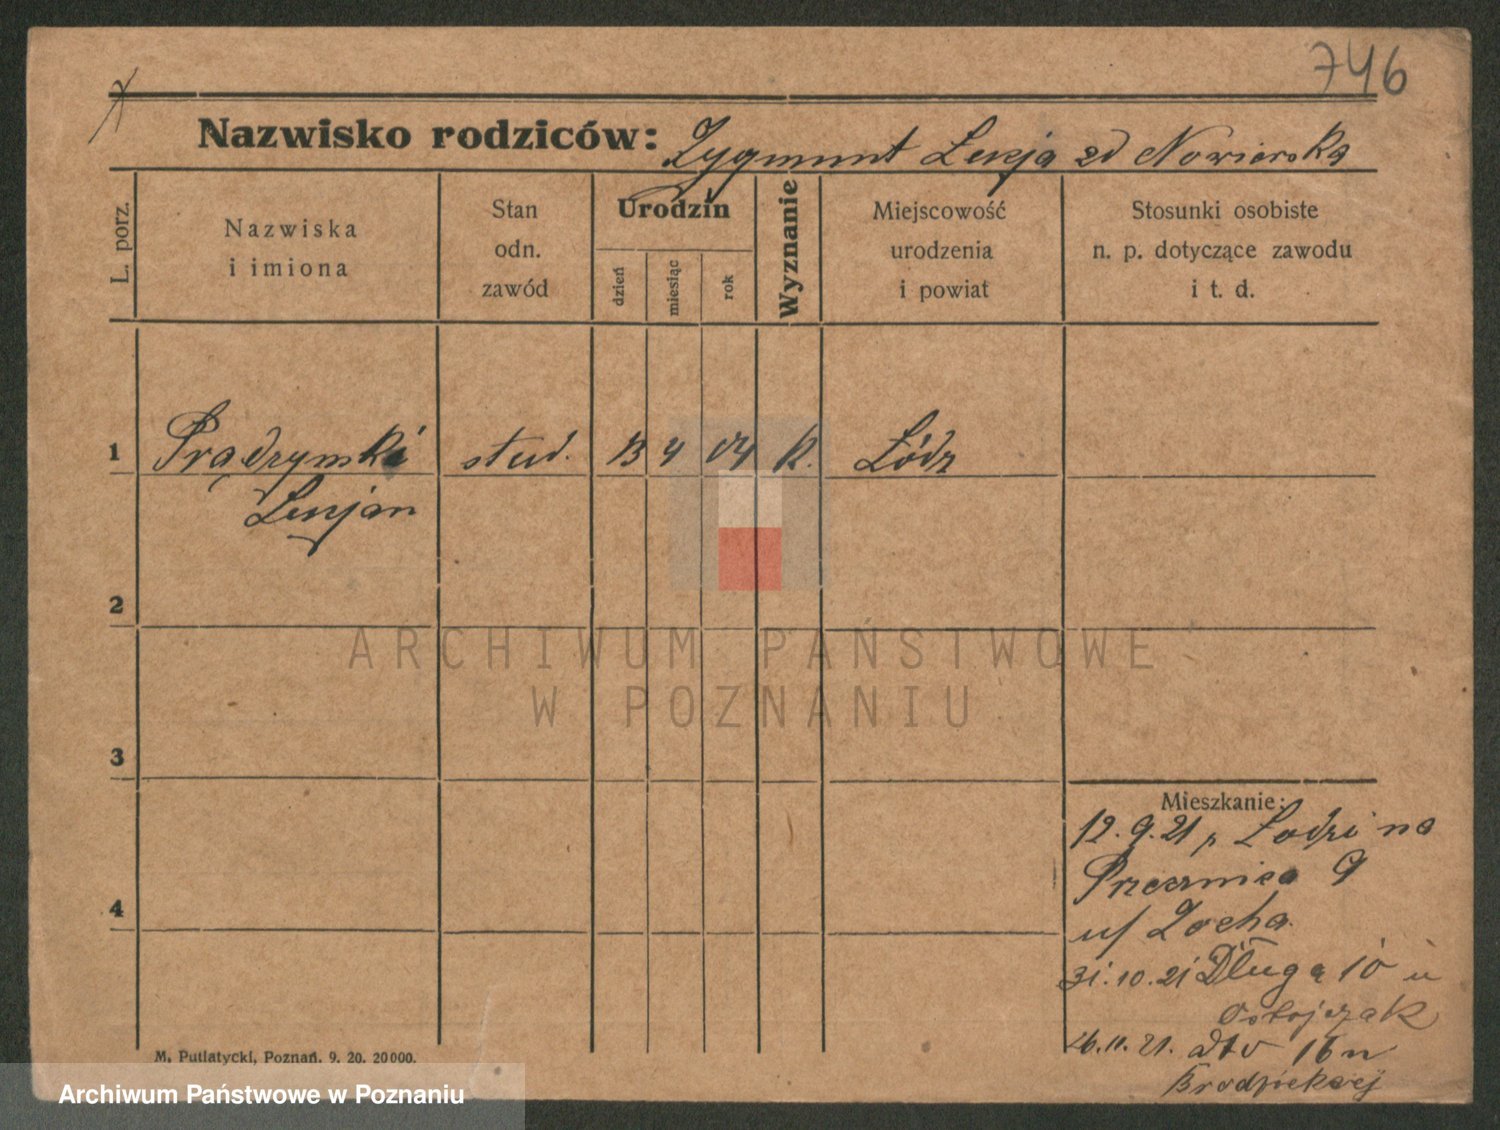 746
Nazwisko rodziców: Zygmunt Lucja zd Nowierska
L. porz.
Nazwiska
i imiona
Stan
odn.
zawód
Urodzin
dzień
miesiąc
rok
Wyznanie
Miejscowość
urodzenia
i powiat
Stosunki osobiste
n. p. dotyczące zawodu
i t. d.
1 Prądzymski stud. 13 4 04 K. Łódz
Lucjan
2
3
4
Mieszkanie:
12.9.21 z Łodzi na
Przecznica 9
u/ Zocha
31.10.21 Długą 10 u
Ostojczak
26.11.21. dto 16 u
M. Putiatycki, Poznań. 9. 20. 20000.
ARCHIWUM PAŃSTWOWE
W POZNANIU
Archiwum Państwowe w Poznaniu